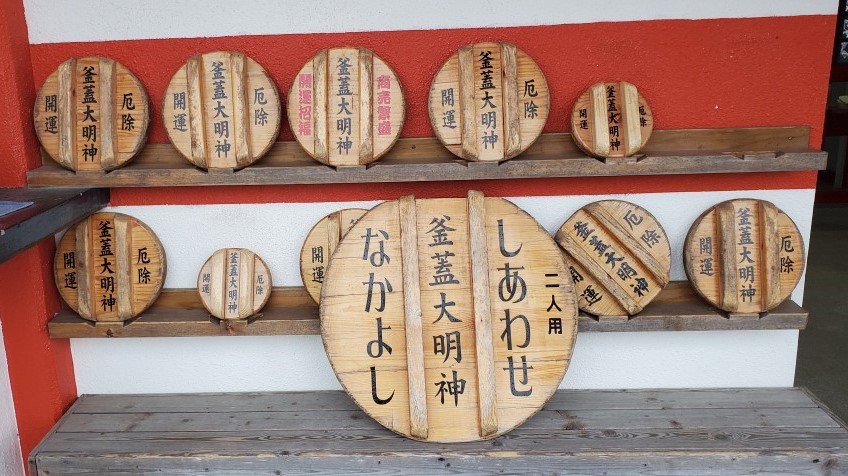 厄除
釜蓋大明神
開運
厄除
釜蓋大明神
開運
商売繁盛
釜蓋大明神
開運招福
厄除
釜蓋大明神
開運
厄除
釜蓋大明神
開運
厄除
釜蓋大明神
開運
厄除
釜蓋大明神
開運
開運
二人用
しあわせ
釜蓋大明神
なかよし
厄除
釜蓋大明神
開運
厄除
釜蓋大明神
開運